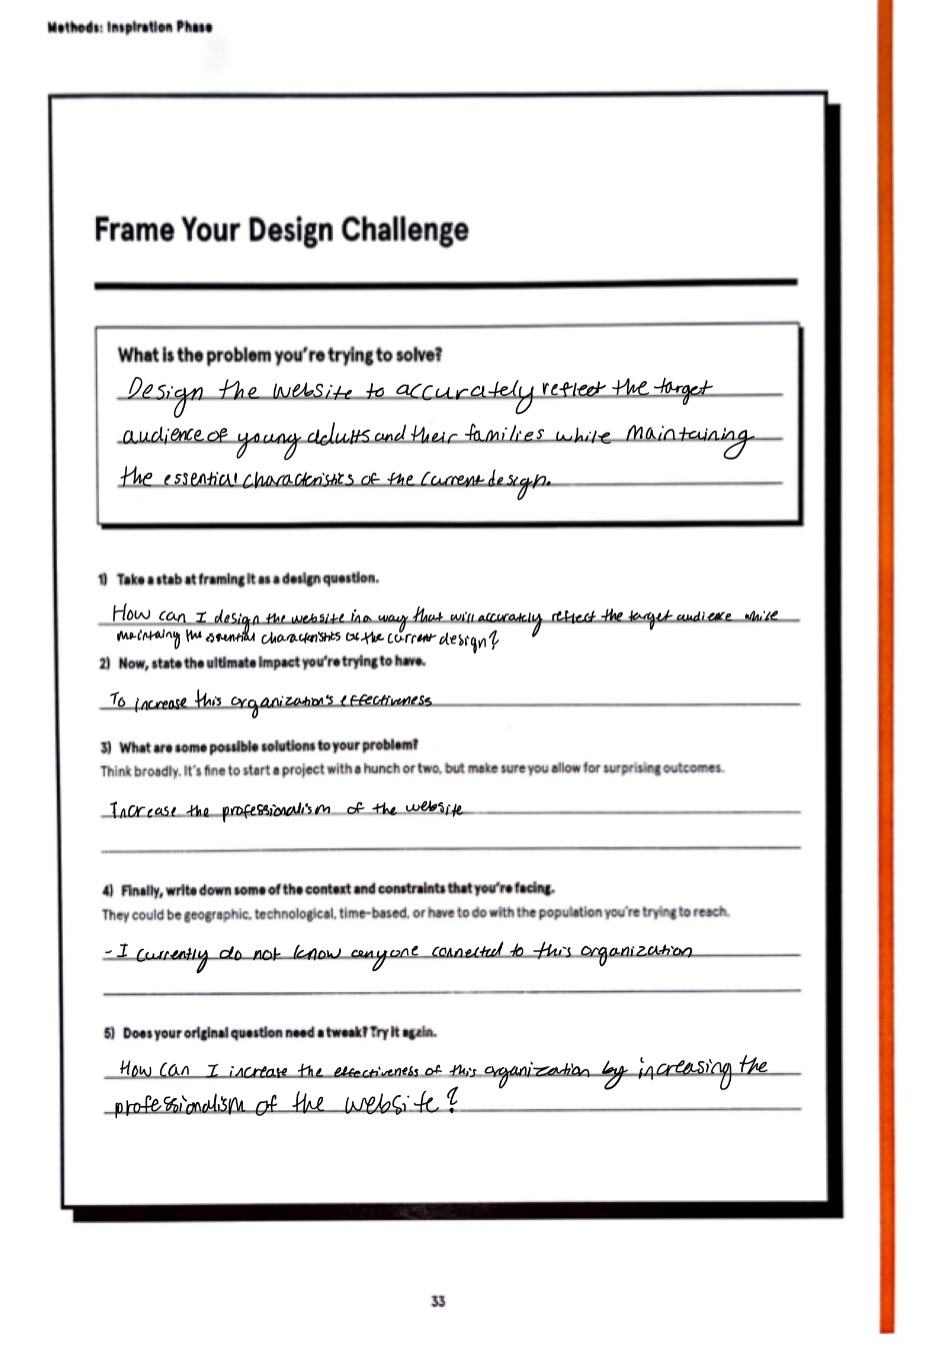 Methods: Inspiration Phase
Frame Your Design Challenge
What is the problem you're trying to solve?
Design the website to accurately reflect the target
audience of young adults and their families while maintaining
the essential characteristics of the current design.
1) Take a stab at framing it as a design question.
How can I design the website in a way that will accurately reflect the target audience while
maintaing the essential characteristics of the current design?
2) Now, state the ultimate impact you're trying to have.
To increase this organization's effectiveness
3) What are some possible solutions to your problem?
Think broadly. It's fine to start a project with a hunch or two, but make sure you allow for surprising outcomes.
Increase the professionalism of the website
4) Finally, write down some of the context and constraints that you're facing.
They could be geographic, technological, time-based, or have to do with the population you're trying to reach.
- I currently do not know anyone connected to this organization
5) Does your original question need a tweak? Try it again.
How can I increase the effectiveness of this organization by increasing the
professionalism of the website?
33